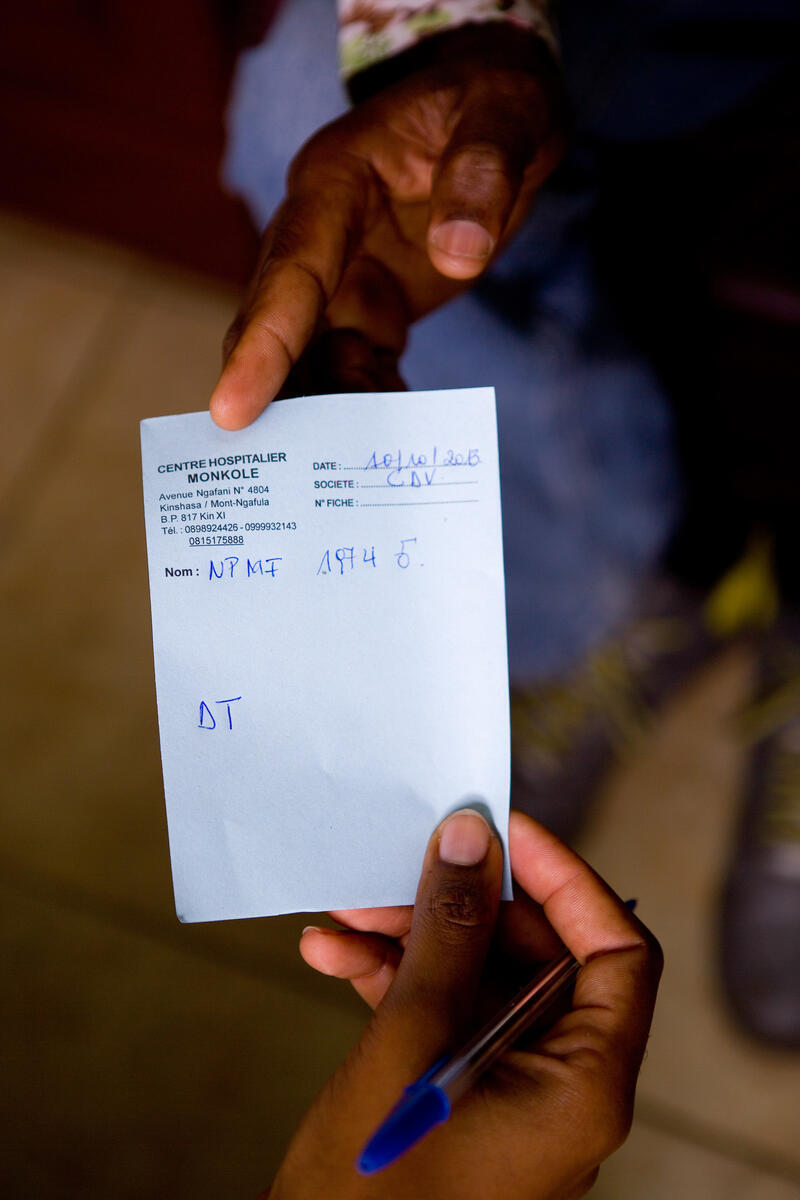 CENTRE HOSPITALIER
MONKOLE
Avenue Ngafani N° 4804
Kinshasa / Mont-Ngafula
B.P. 817 Kin XI
Tél. : 0898924426 - 0999932143
0815175888
DATE : 10/10/2013
SOCIETE : CDV
N° FICHE :
Nom : NPMI 1974 5.
DT